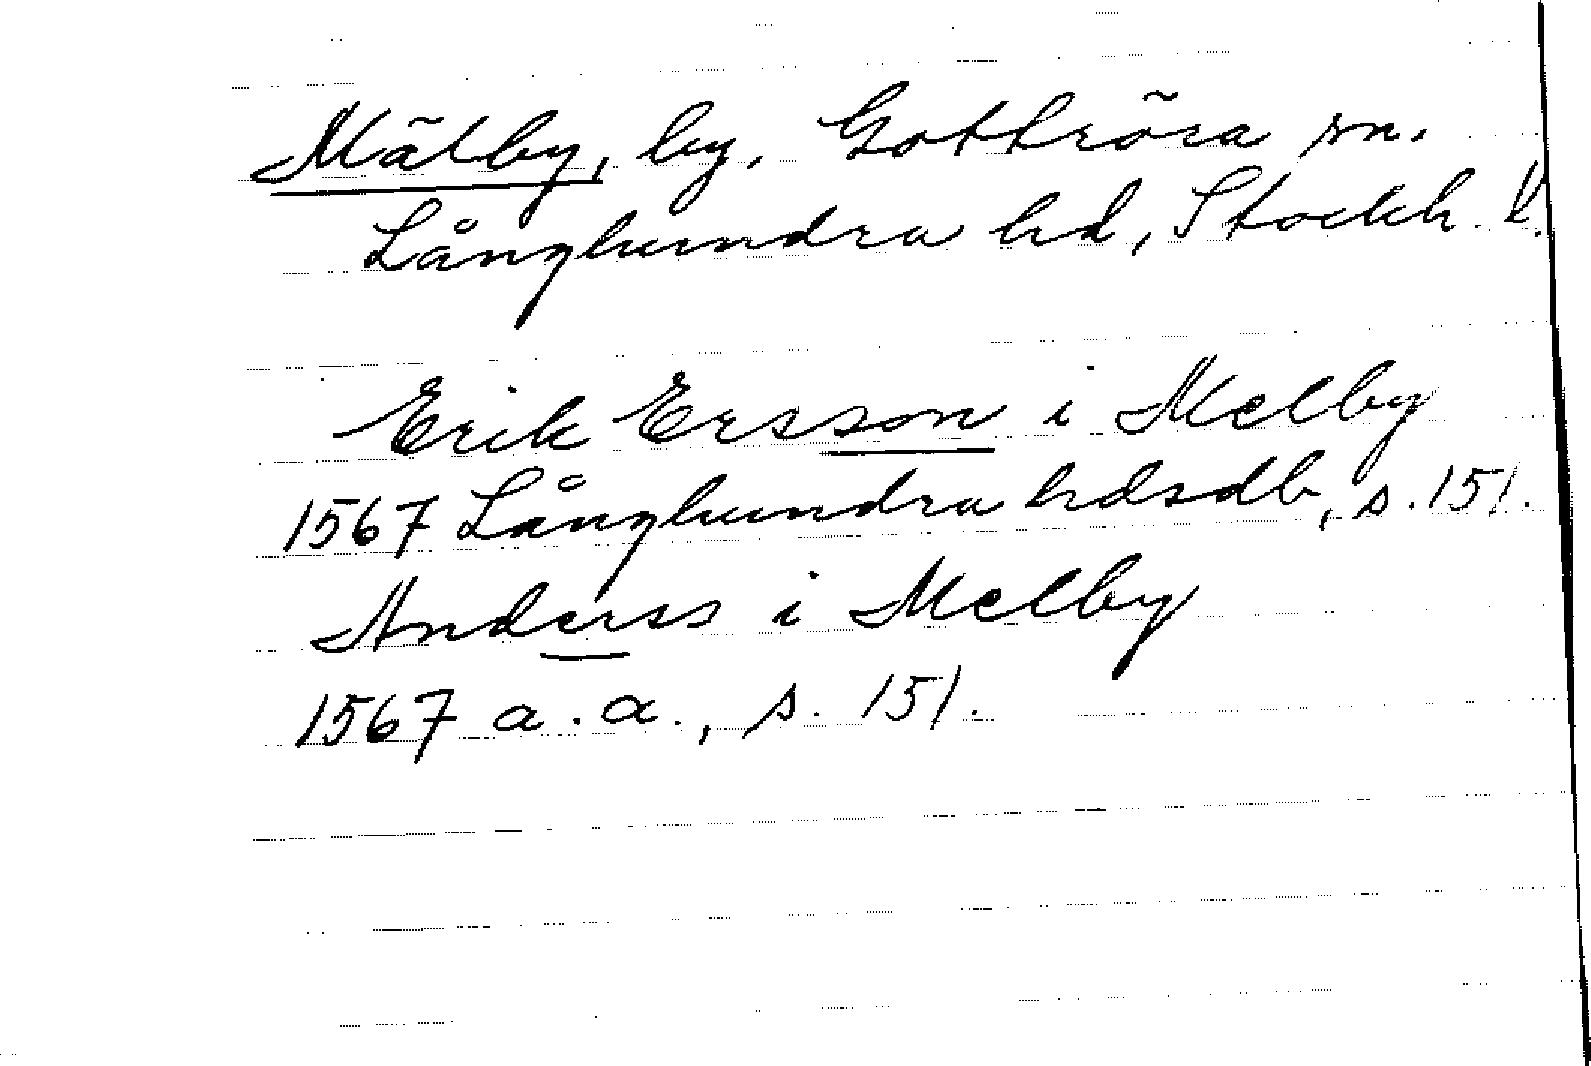 Mälby, by, Gottrösa sn.
Långhundra hd, Stockh. l.
Erik Ersson i Melby
1567 Långhundra hdsdb, s. 151.
Anderss i Melby
1567 a. a., s. 151.